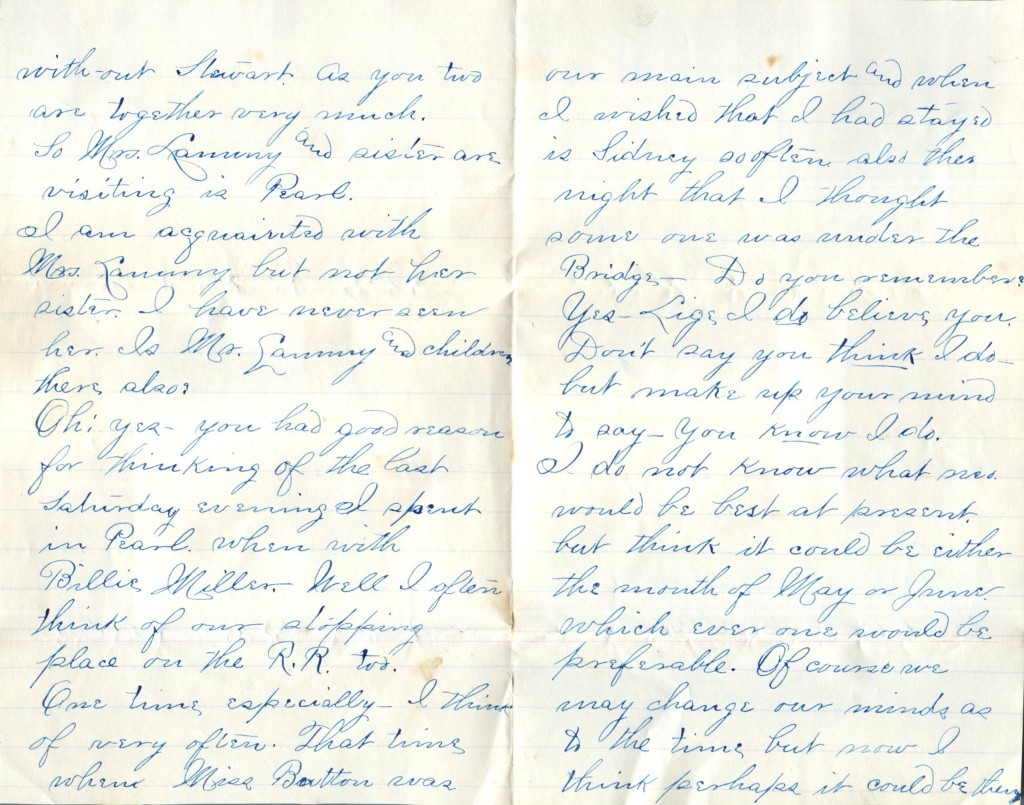 with-out Stewart as you two
are together very much.
So Mrs. Lammy and sister are
visiting is Pearl.
I am acquainted with
Mrs. Lammy but not her
sister. I have never seen
her. Is Mr. Lammy and children
there also?
Oh! yes- you had good reason
for thinking of the last
Saturday evening I spent
in Pearl. when with
Billie Miller. Well I often
think of our stopping
place on the R.R. too.
One time especially- I think
of very often. That time
when Miss Button was
our main subject and when
I wished that I had stayed
is Sidney so often also the
night that I thought
some one was under the
Bridge- Do you remember?
Yes- Lige I do believe you.
Don't say you think I do-
but make up your mind
to say- you know I do.
I do not know what mo.
would be best at present.
but think it could be either
the month of May or June.
which ever one would be
preferable. Of course we
may change our minds as
to the time but now I
think perhaps it could be then